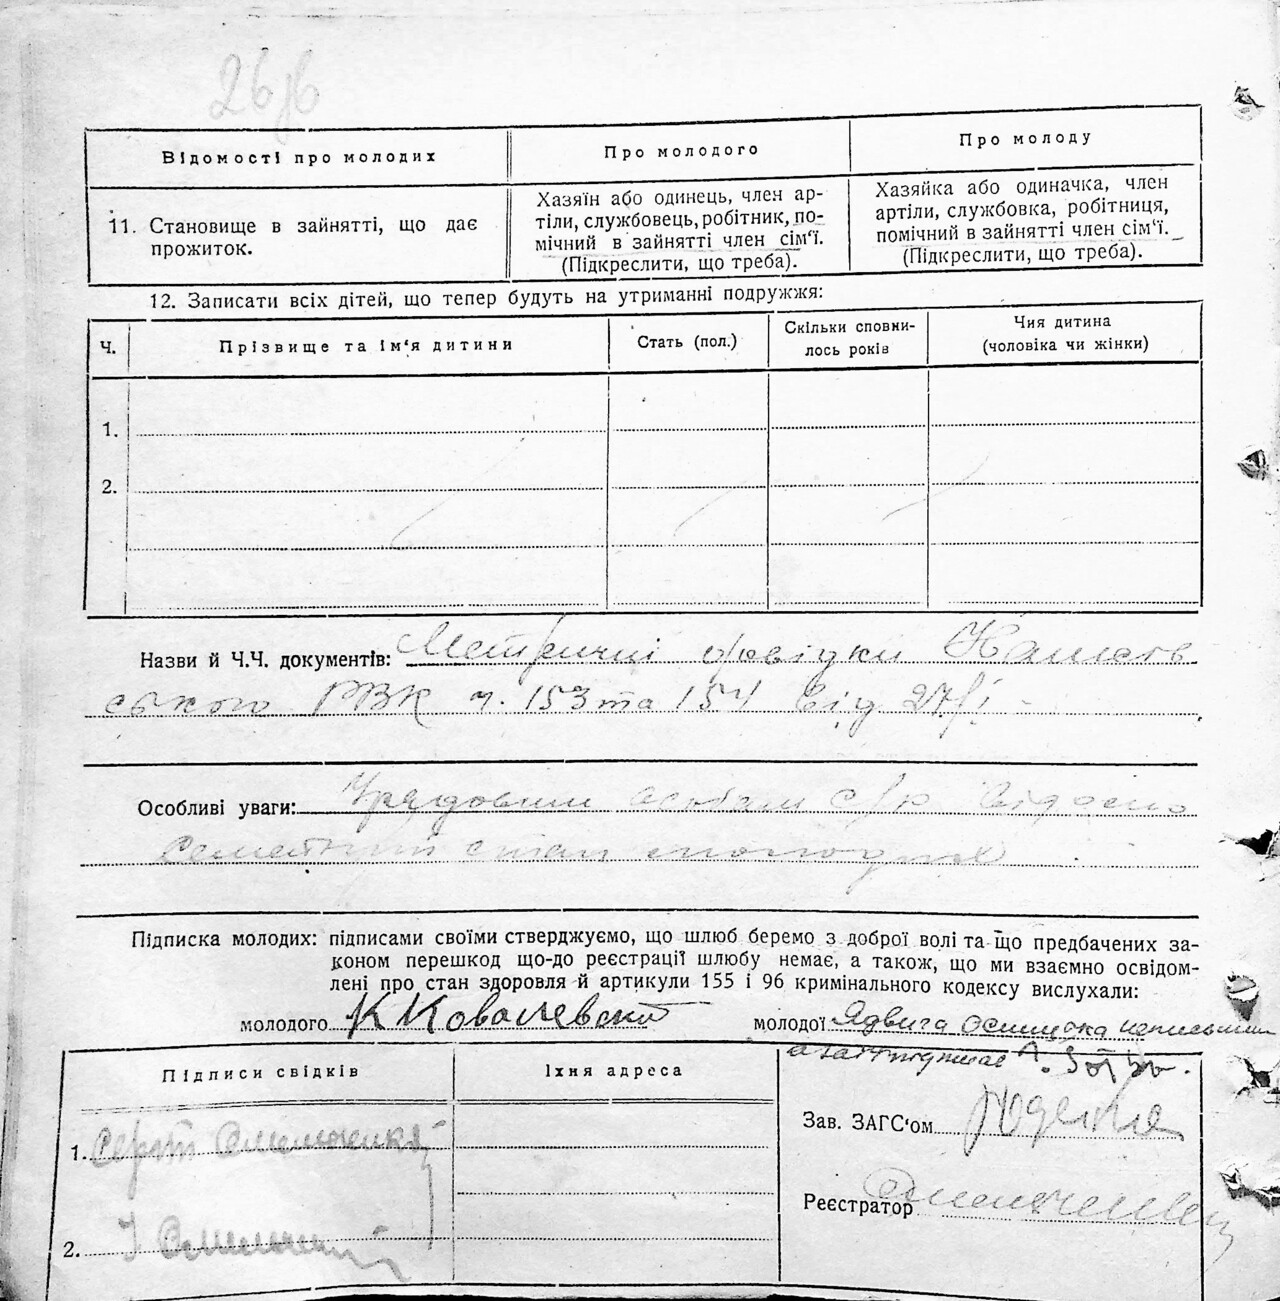 Відомості про молодих
Про молодого
Про молоду
11. Становище в зайнятті, що дає
прожиток.
Хазяїн або одинець, член ар-
тіли, службовець, робітник, по-
мічний в зайнятті член сім'ї.
(Підкреслити, що треба).
Хазяйка або одиначка, член
артіли, службовка, робітниця,
помічний в зайнятті член сім'ї.
(Підкреслити, що треба).
12. Записати всіх дітей, що тепер будуть на утриманні подружжя:
Ч.
Прізвище та ім'я дитини
Стать (пол.)
Скільки сповни-
лось років
Чия дитина
(чоловіка чи жінки)
1.
2.
Назви й Ч.Ч. документів: Метричні довідки
ського РВК ч. 153 та 154 від
Особливі уваги: Урядовим особам
стан молодих
Підписка молодих: підписами своїми стверджуємо, що шлюб беремо з доброї волі та що предбачених за-
коном перешкод що-до реєстрації шлюбу немає, а також, що ми взаємно освідом-
лені про стан здоровля й артикули 155 і 96 кримінального кодексу вислухали:
молодого К Ковалевский
молодої Ядвига
Підписи свідків
Їхня адреса
1. Сергій
2.
Зав. ЗАГС'ом
Реєстратор